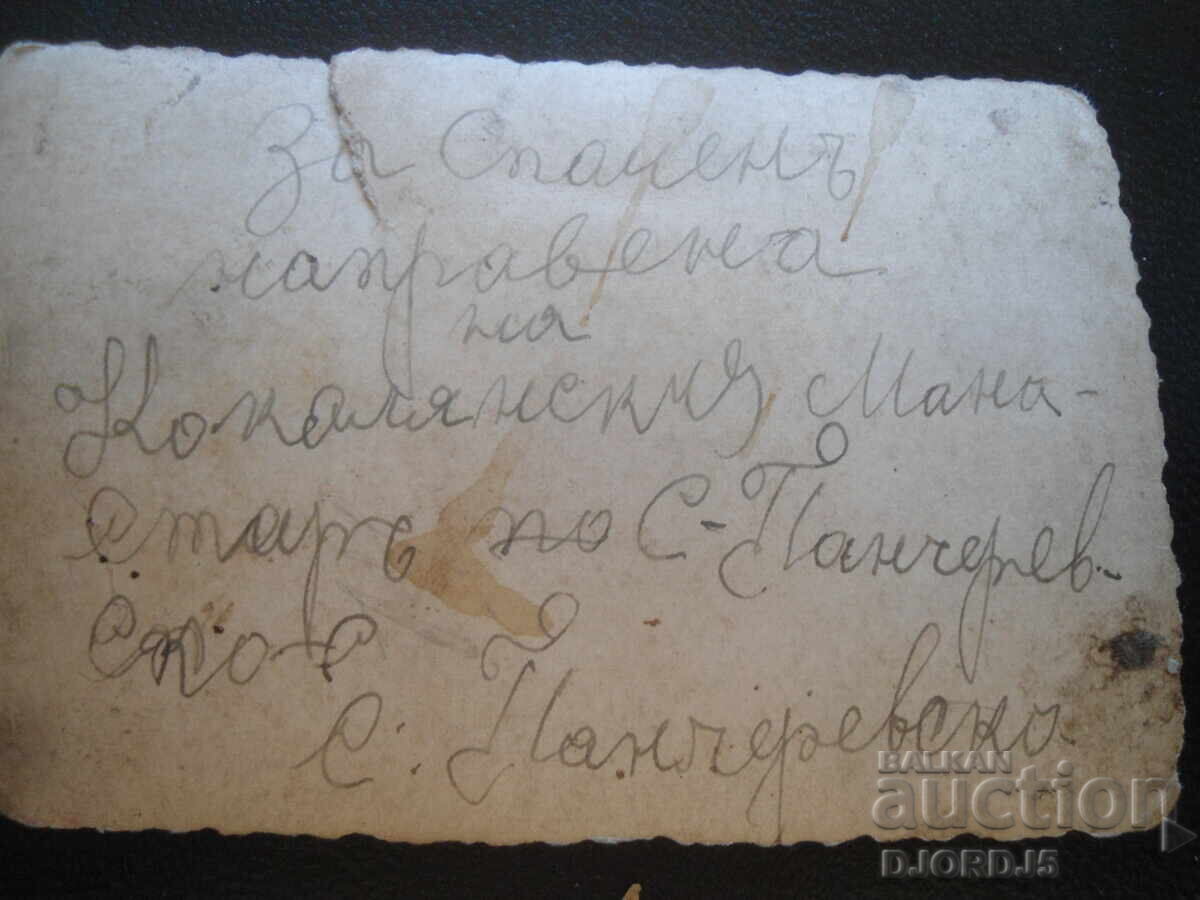 За Споменъ
направена
на
Кокалянския Мана-
старъ по С-Панчерев-
ско-С
С. Панчеревско
BALKAN
auction
DJORDJ5